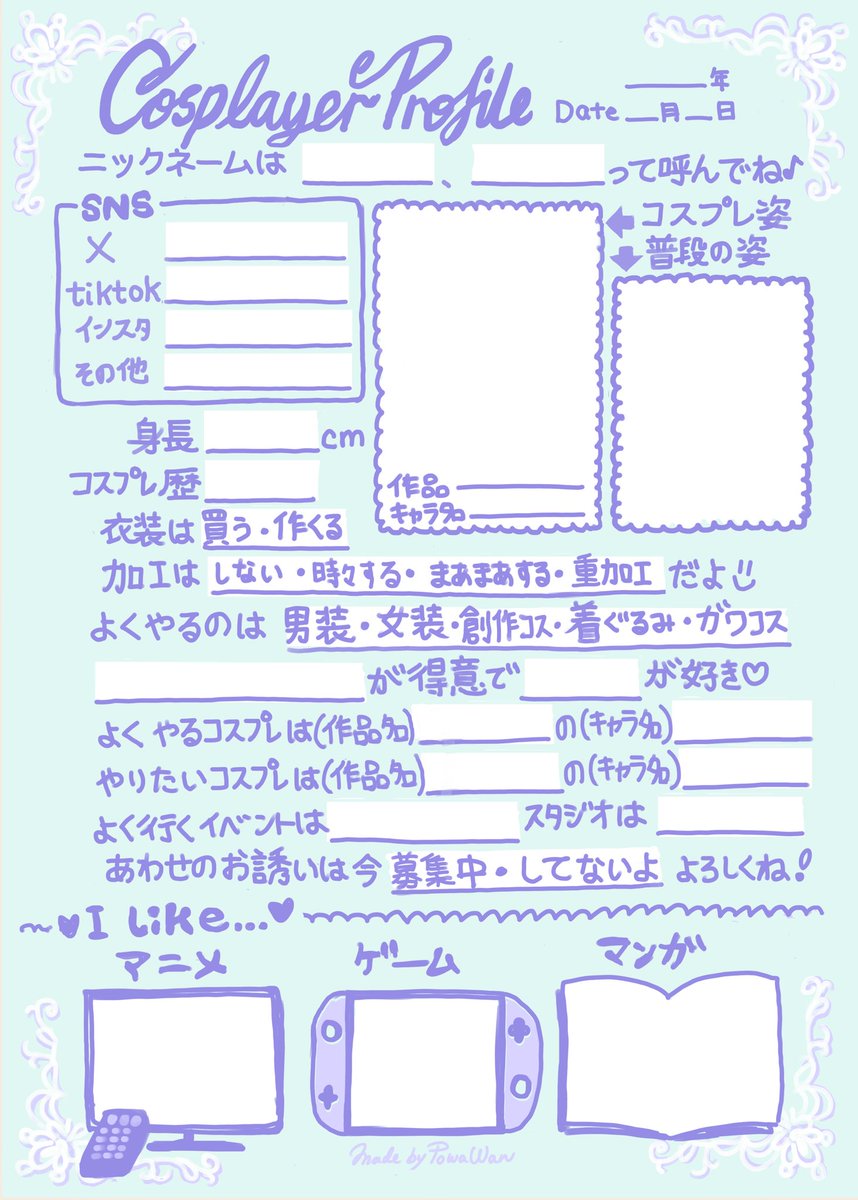 Cosplayer Profile
Date 年
月 日
ニックネームは 、 って呼んでね♪
SNS
X
tiktok
インスタ
その他
←コスプレ姿
↓普段の姿
作品
キャラ名
身長 cm
コスプレ歴
衣装は 買う・作くる
加工は しない・時々する・まあまあする・重加工 だよ
よくやるのは 男装・女装・創作コス・着ぐるみ・ガワコス
が得意で が好き♡
よくやるコスプレは(作品名) の(キャラ名)
やりたいコスプレは(作品名) の(キャラ名)
よく行くイベントは スタジオは
あわせのお誘いは今 募集中・してないよ よろしくね!
~♥I like...♥
アニメ
ゲーム
マンガ
Made by PowaWan